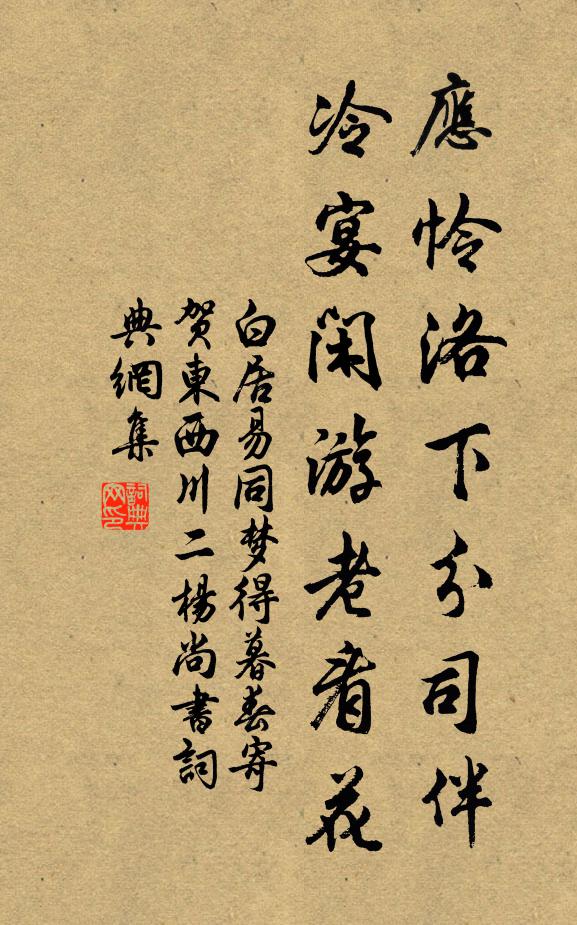 應怜洛下分司伴
冷宴閑游老看花
白居易同梦得暮春寄
贺東西川二楊尚書詞
典網集
詞典网印